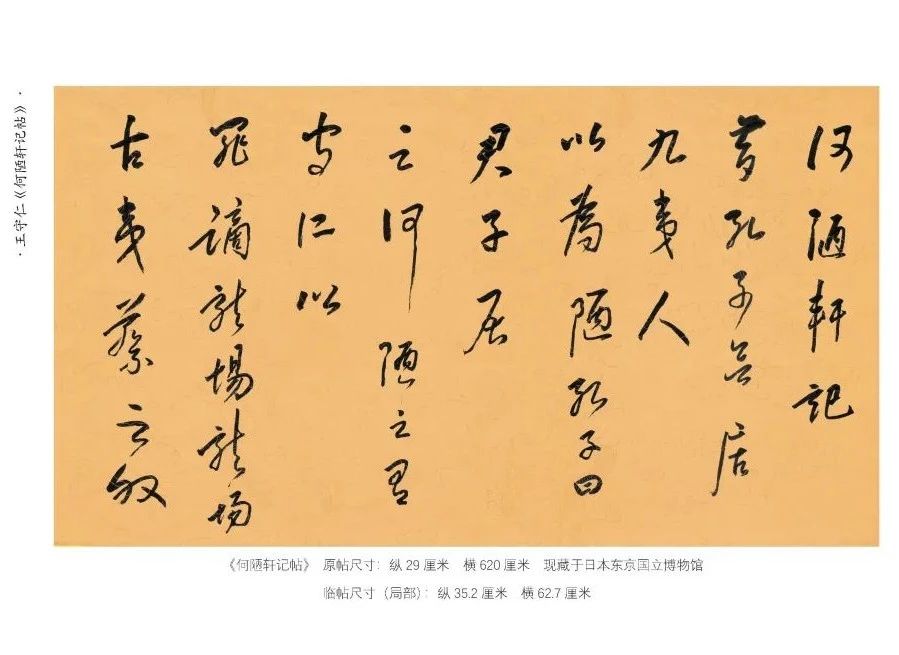 何陋軒記
昔孔子欲居
九夷人
以為陋孔子曰
君子居
之何陋之有
守仁以
罪謫龍場龍場
古夷蔡之
·王守仁《何陋轩记帖》·
《何陋轩记帖》 原帖尺寸：纵29厘米 横620厘米 现藏于日本东京国立博物馆
临帖尺寸（局部）：纵35.2厘米 横62.7厘米